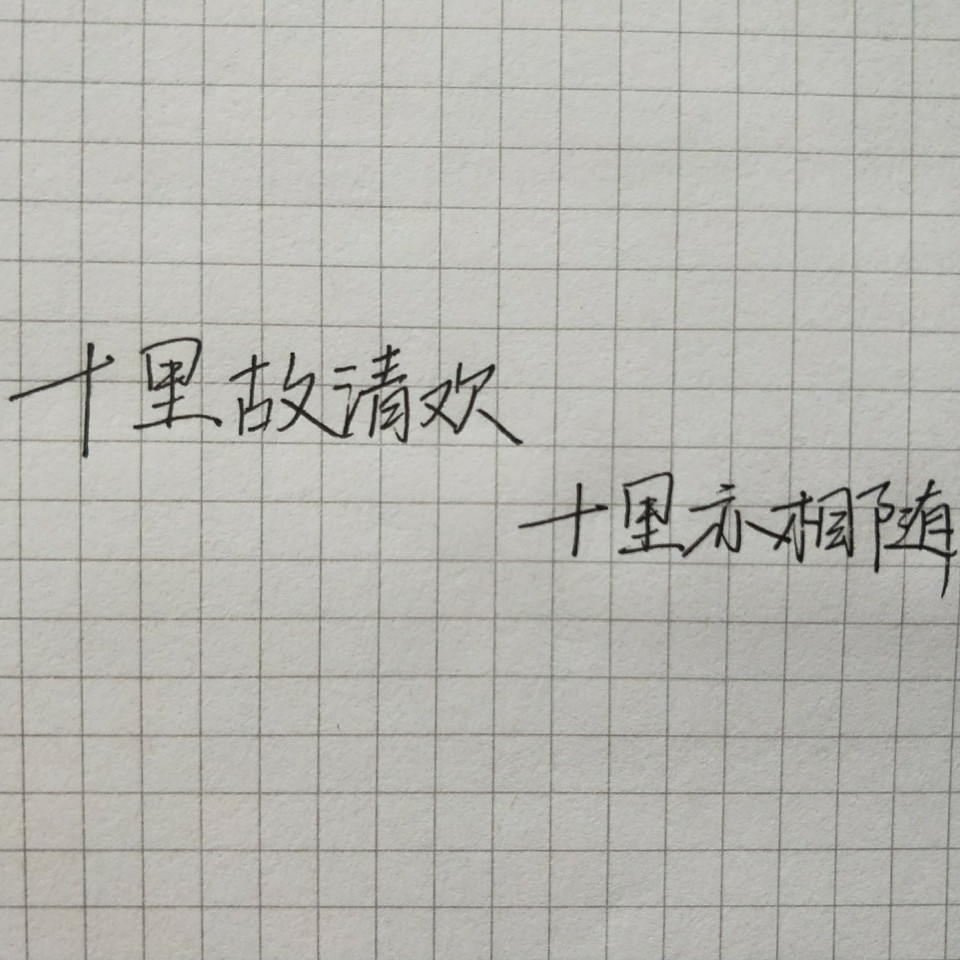 十里故清欢
十里亦相随